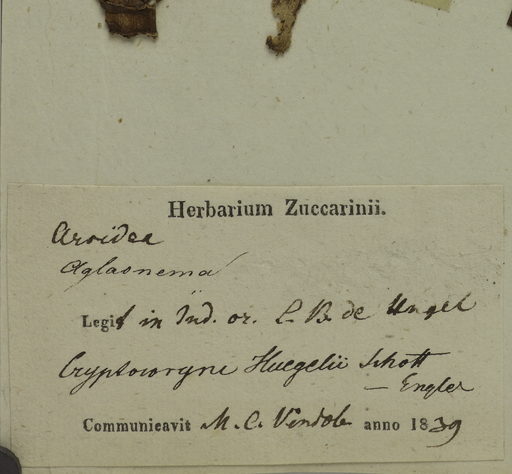 Herbarium Zuccarinii.
Aroidea
Aglaonema
Legit in Ind. or. C. B. de Hugel
Cryptocoryne Huegelii Schott
— Engler
Communicavit M. C. Vindob anno 1839